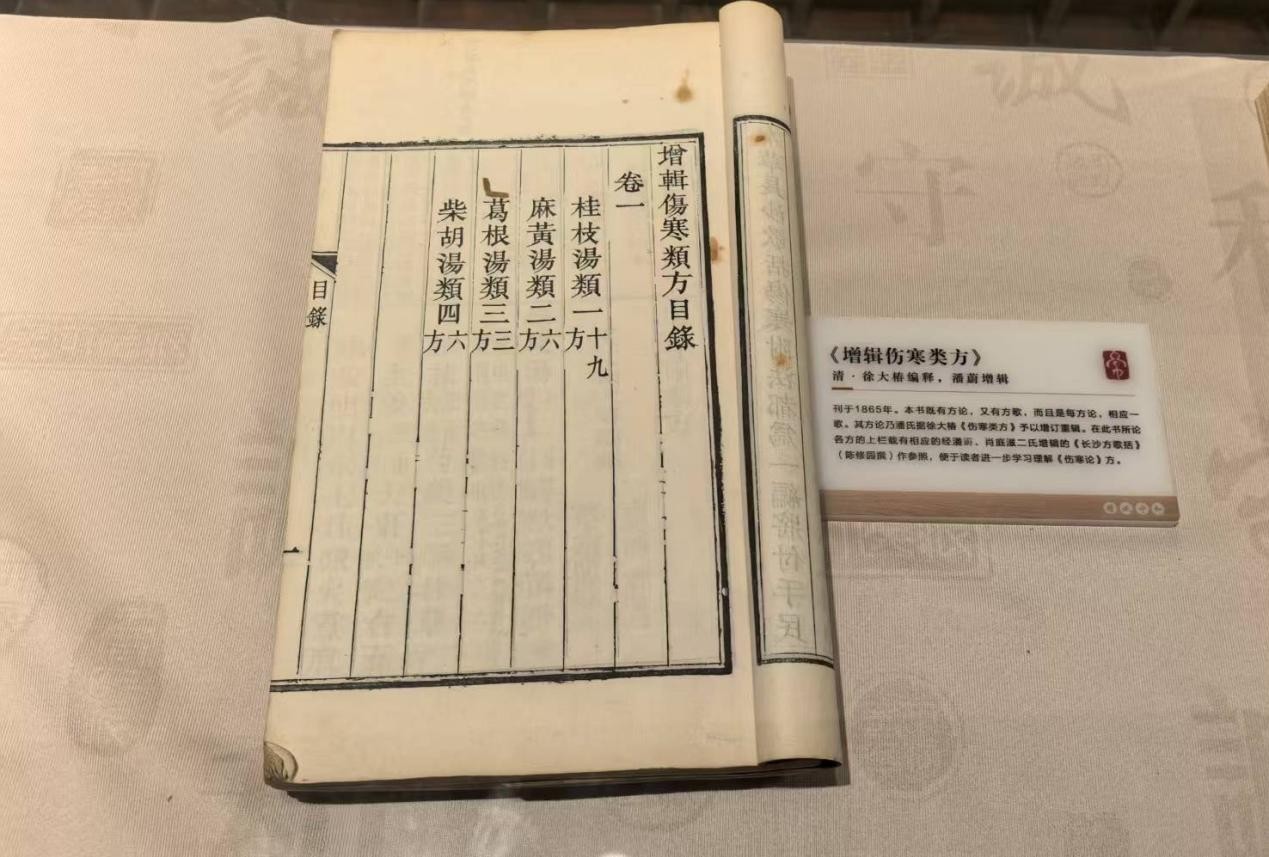 增輯傷寒類方目錄
卷一
桂枝湯類一十九方
麻黃湯類二六方
葛根湯類三三方
柴胡湯類四六方
目錄
一
《增辑伤寒类方》
清·徐大椿编释,潘蔚增辑
刊于1865年。本书既有方论,又有方歌,而且是每方论,相应一
歌。其方论乃潘氏据徐大椿《伤寒类方》予以增订重辑。在此书所论
各方的上栏载有相应的经潘蔚、肖庭滋二氏增辑的《长沙方歌括》
(陈修园撰)作参照,便于读者进一步学习理解《伤寒论》方。
長沙歌括傷寒附法都為一編將付手民
誠
守